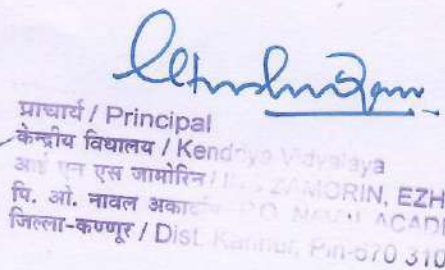 प्राचार्य / Principal
केन्द्रीय विधालय / Kendriya Vidyalaya
आई एन एस जामोरिन / ZAMORIN, EZH
पि. ओ. नावल P.O. NAVAL ACAD
जिल्ला-कण्णूर / Dist. Kannur, Pin-670 310